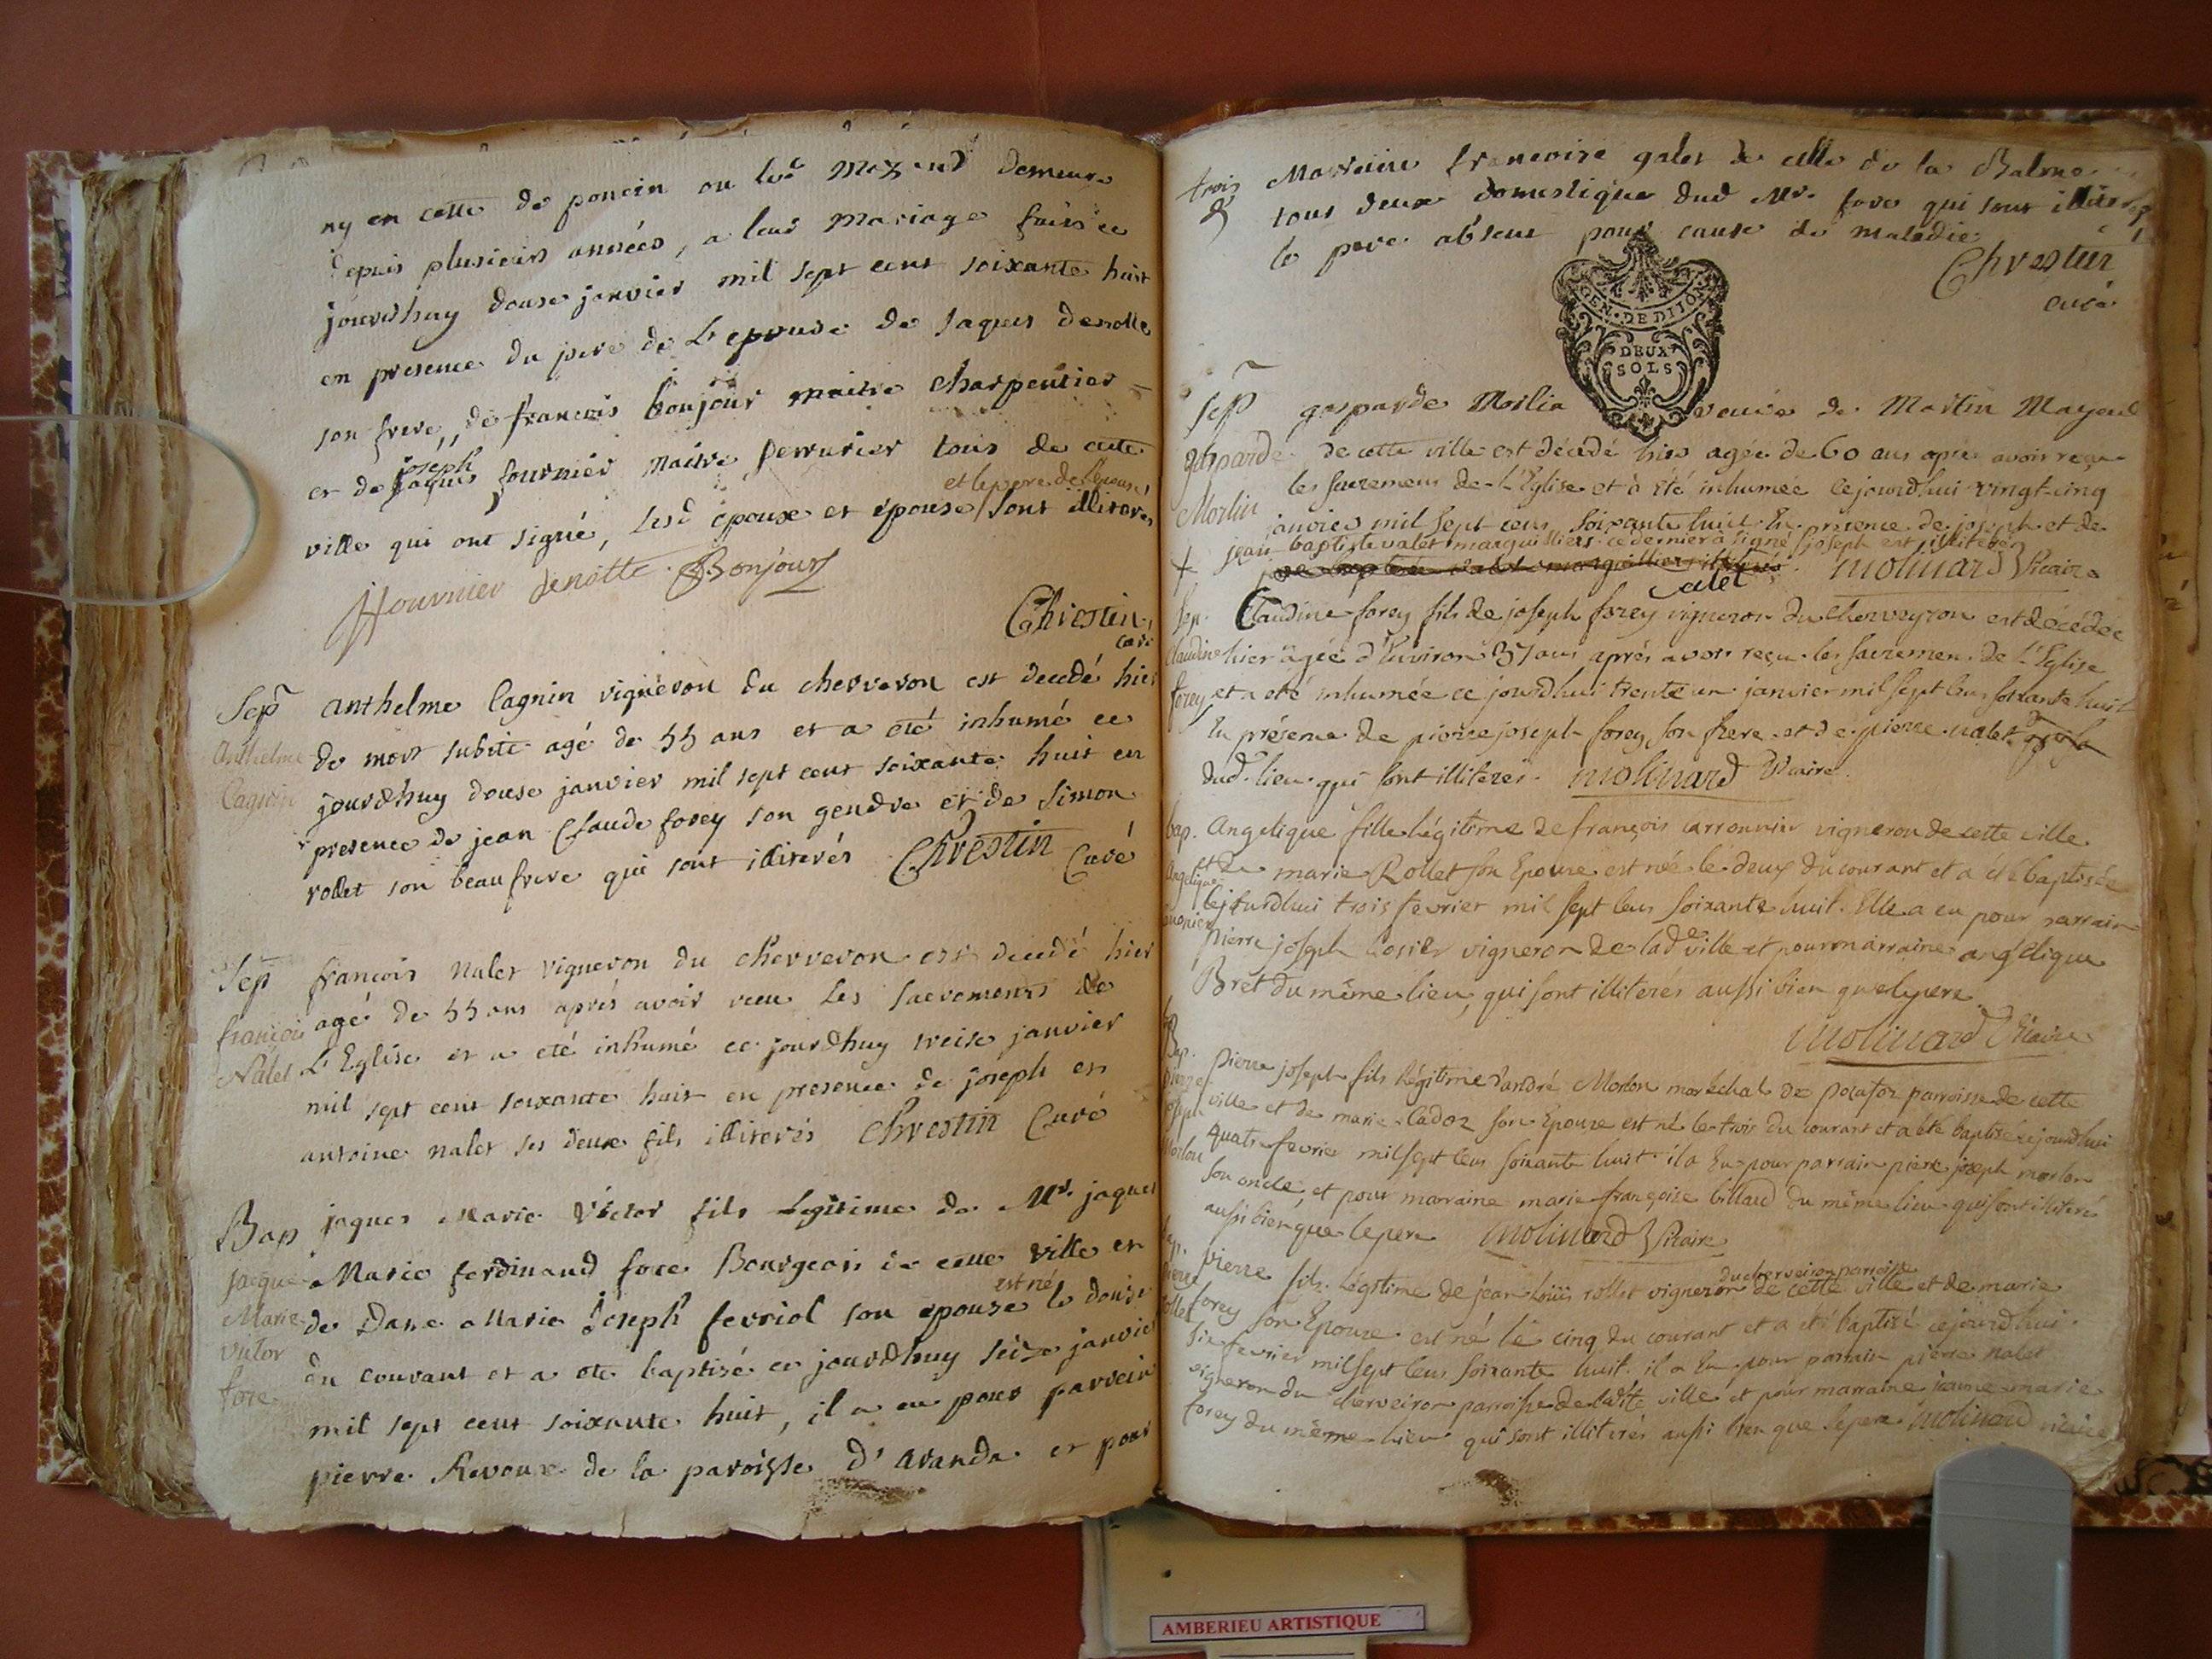 ny en cette de poncin ou led Mozend demeure
depuis plusieurs années, a leur mariage faits ce
jourdhuy douse janvier mil sept cent soixante huit
en presence du pere de L'epouse de jaques denotte
son frere, de francois bonjour maitre charpentier
joseph
et de jaques fournier maitre serrurier tous de cette
et le pere de l'epouse
ville qui ont signé, lesd epoux et epouse sont illiteres
fournier denotte Bonjour
Chrestin
curé
Sep anthelme Cagnin vigneron du cherveron est decedé hier
Anthelme de mort subite agé de 55 ans et a eté inhumé ce
Cagnin jourdhuy douse janvier mil sept cent soixante huit en
presence de jean Claude forey son gendre et de Simon
rollet son beau frere qui sont illiterés Chrestin Curé
Sep francois nalet vigneron du cherveron est decedé hier
françois agé de 55 ans aprés avoir recu Les sacrements de
Nalet L'Eglise et a eté inhumé ce jourdhuy treise janvier
mil sept cent soixante huit en presence de joseph et
antoine nalet ses deux fils illiterés Chrestin Curé
Bap jaques Marie Victor fils Legitime de Mr. jaques
jacque Marie ferdinand fore Bourgeois de cette ville et
est né
Marie de Dame Marie Joseph fevriol son epouse le douse
victor du courant et a ete baptisé ce jourdhuy seize janvier
fore mil sept cent soixante huit, il a eu pour parrein
pierre Revoux de la paroisse d'aranda et pour
trois Marraine francoise galet de celle de la Balme
tous deux domestique dud Mr. fore qui sont illiterés
le pere absent pour cause de maladie
Chrestin
curé
GEN. DE DIJON
DEUX
SOLS
Sep gasparde Morlin veuve de Martin Mayeul
gasparde de cette ville est décédé hier agée de 60 ans après avoir reçu
les sacremens de L'Eglise et à été inhumée cejourdhui vingt-cinq
Morlin janvier mil sept cens soixante huit En présence de joseph et de
jean baptiste valet marguilliers ce dernier a signé joseph est illiteré
molinard Vicaire
valet
Sep. Claudine forey fils de joseph forey vigneron du Cherveyron est décédée
Claudine hier agée d'Environ 37 ans aprés avoir reçu les sacremen de L'Eglise
forey et a eté inhumée ce jourdhui trente un janvier mil sept cens soixante huit
En présence de pierre joseph forey son frere et de pierre nalet
dud. lieu qui sont illiterés. molinard Vicaire
bap. Angelique fille légitime de françois carronnier vigneron de cette ville
Angelique et de marie Rollet son Epouse est née le deux du courant et a été baptisée
cejourdhui trois fevrier mil sept cens soixante huit. Elle a eu pour parrain
pierre joseph vigneron de lade ville et pour marraine angélique
Bret du même lieu, qui sont illiterés aussi bien que le pere
molinard Vicaire
Bap. pierre joseph fils légitime d'andré Morlon maréchal de paroisse de cette
pierre ville et de marie Cadoz son Epouse est né le trois du courant et a été baptisé cejourdhui
joseph quatre fevrier mil sept cens soixante huit. il a Eu pour parrain pierre joseph morlon
Morlon son oncle, et pour marraine marie françoise billard du même lieu qui sont illiterés
aussi bien que le pere molinard Vicaire
du cherveiron paroisse
bap. pierre fils légitime de jean louis rollet vigneron de cette ville et de marie
pierre forey son Epouse est né le cinq du courant et a été baptisé cejourdhui
rollet six fevrier mil sept cens soixante huit. il a Eu pour parrain pierre nalet
vigneron du cherveiron parroisse de ladite ville et pour marraine jeanne marie
forey du même lieu qui sont illiterés aussi bien que le pere molinard vicaire
AMBERIEU ARTISTIQUE